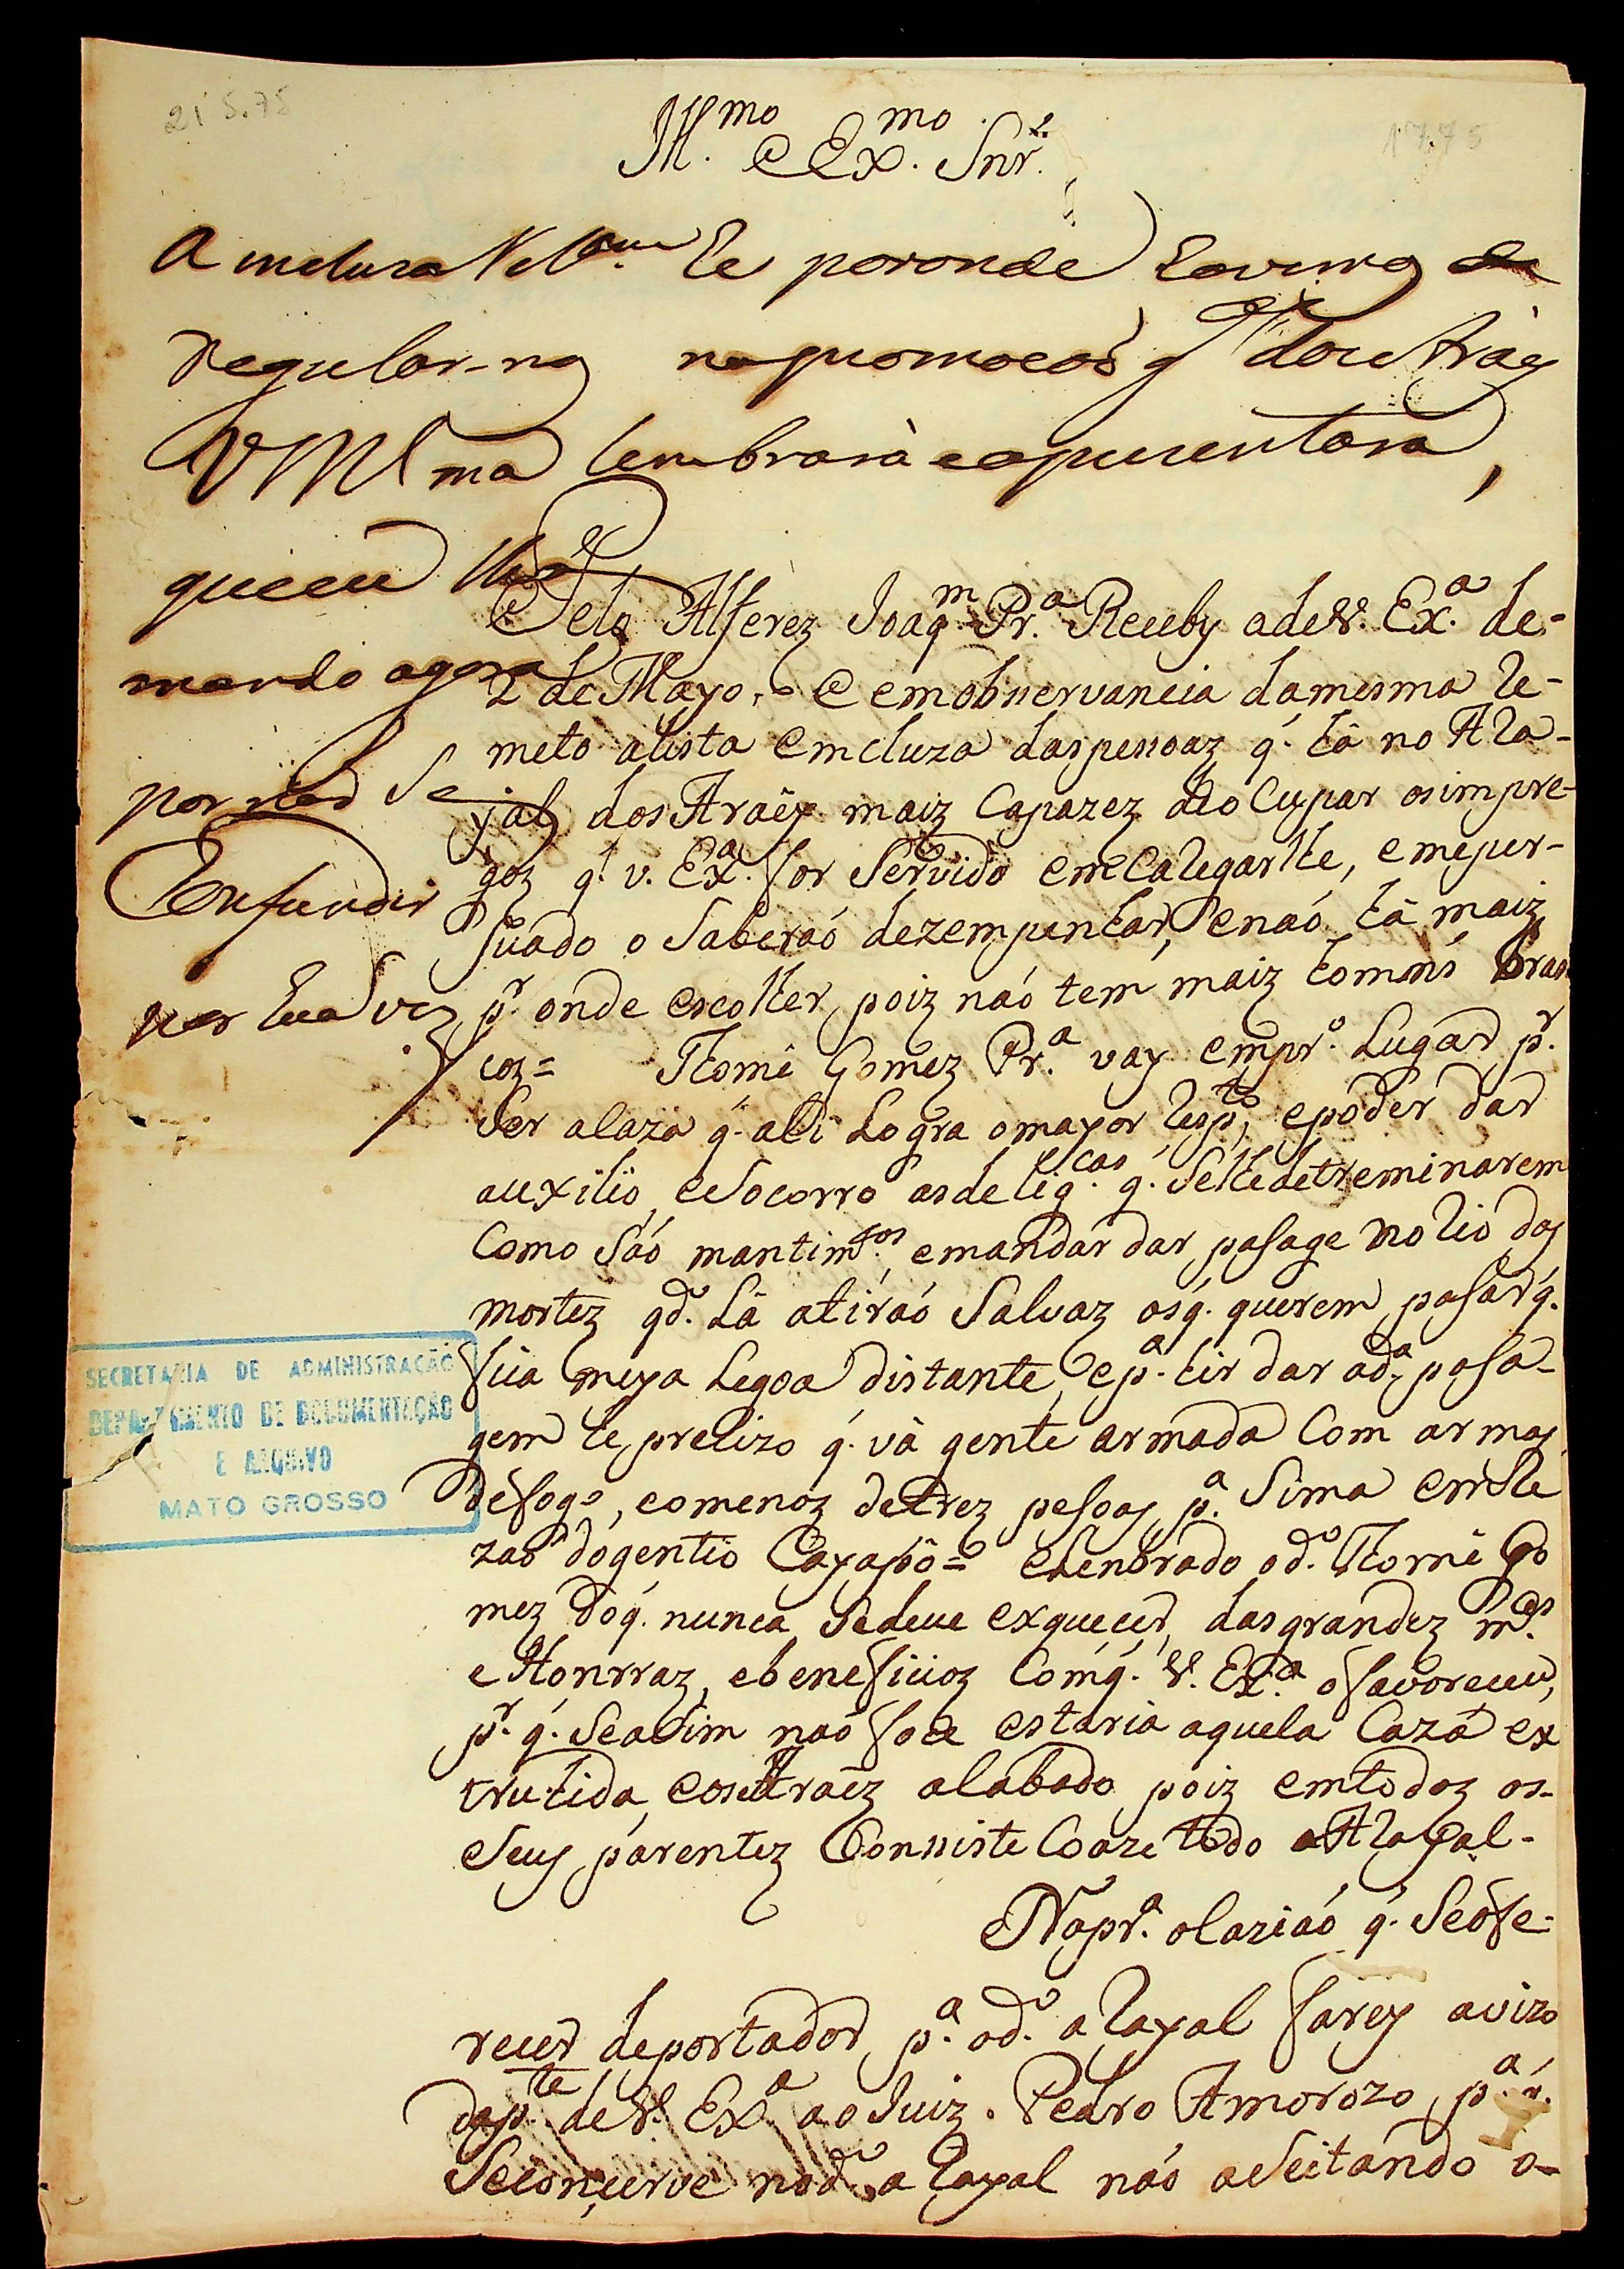 21 5.75
1775
Il.mo e Ex.mo Snr.
A incluza
regular-nos
VM ma lembrará e aprezentara,
que eu lhe
mando agora
por não Se
Confundir
por hua vez
Pelo Alferez Joaq.m Pr.a Receby a de V. Ex.a de-
2 de Mayo, e em obnervancia da mesma Re-
meto a lista emcluza das pessoaz q. há no Ara-
yal dos Araéz maiz Capazez de oCupar os impre-
goz q. v. Ex.a for Servido emCaregarlhe, e meper-
suado o Saberaó dezempenhar, e naó há maiz
p.r onde escolher, poiz naó tem maiz homẽs bran
coz= Thomé Gomez Pr.a vay em pr.o Lugar p.r
Ser a Caza q. ali Logra o mayor Resp.to, e poder dar
auxilio, e Socorro as delig.cas q. Selhe detreminarem
Como Sáo mantim.tos, e mandar dar pasage no Rio das
mortez q.do Lá atiráo Salvaz os q. querem pasar q.
fica meya Legoa distante, e p.a hir dar a d.a pasa-
gem he precizo q. vá gente armada Com armas
de fogo, e o menoz de trez pesoas p.a Sima em Re
zaó do gentio Cayapó= e Lenbrado o d.o Thomé Go
mez do q. nunca Se deve exquecer, das grandez m.es
e Honrraz, e beneficioz Com q. V. Ex.a o favoreceu,
p.r q. Se asim naó foce estaria aquela Caza ex
truhida, e os Araéz acabado, poiz em todoz os-
Seus parentez Conciste Coaze todo o Arayal-
Na pr.a ocaziáo q. Se ofe-
recer de portador p.a o d.o aRayal farey avizo
da p.te de V. Ex.a ao Juiz. Pedro Amorozo, p.a q.
Se conçerve no d.o aRayal náo aSeitando o-
SECRETARIA DE ADMINISTRAÇÃO
DEPARTAMENTO DE DOCUMENTAÇÃO
E ARQUIVO
MATO GROSSO